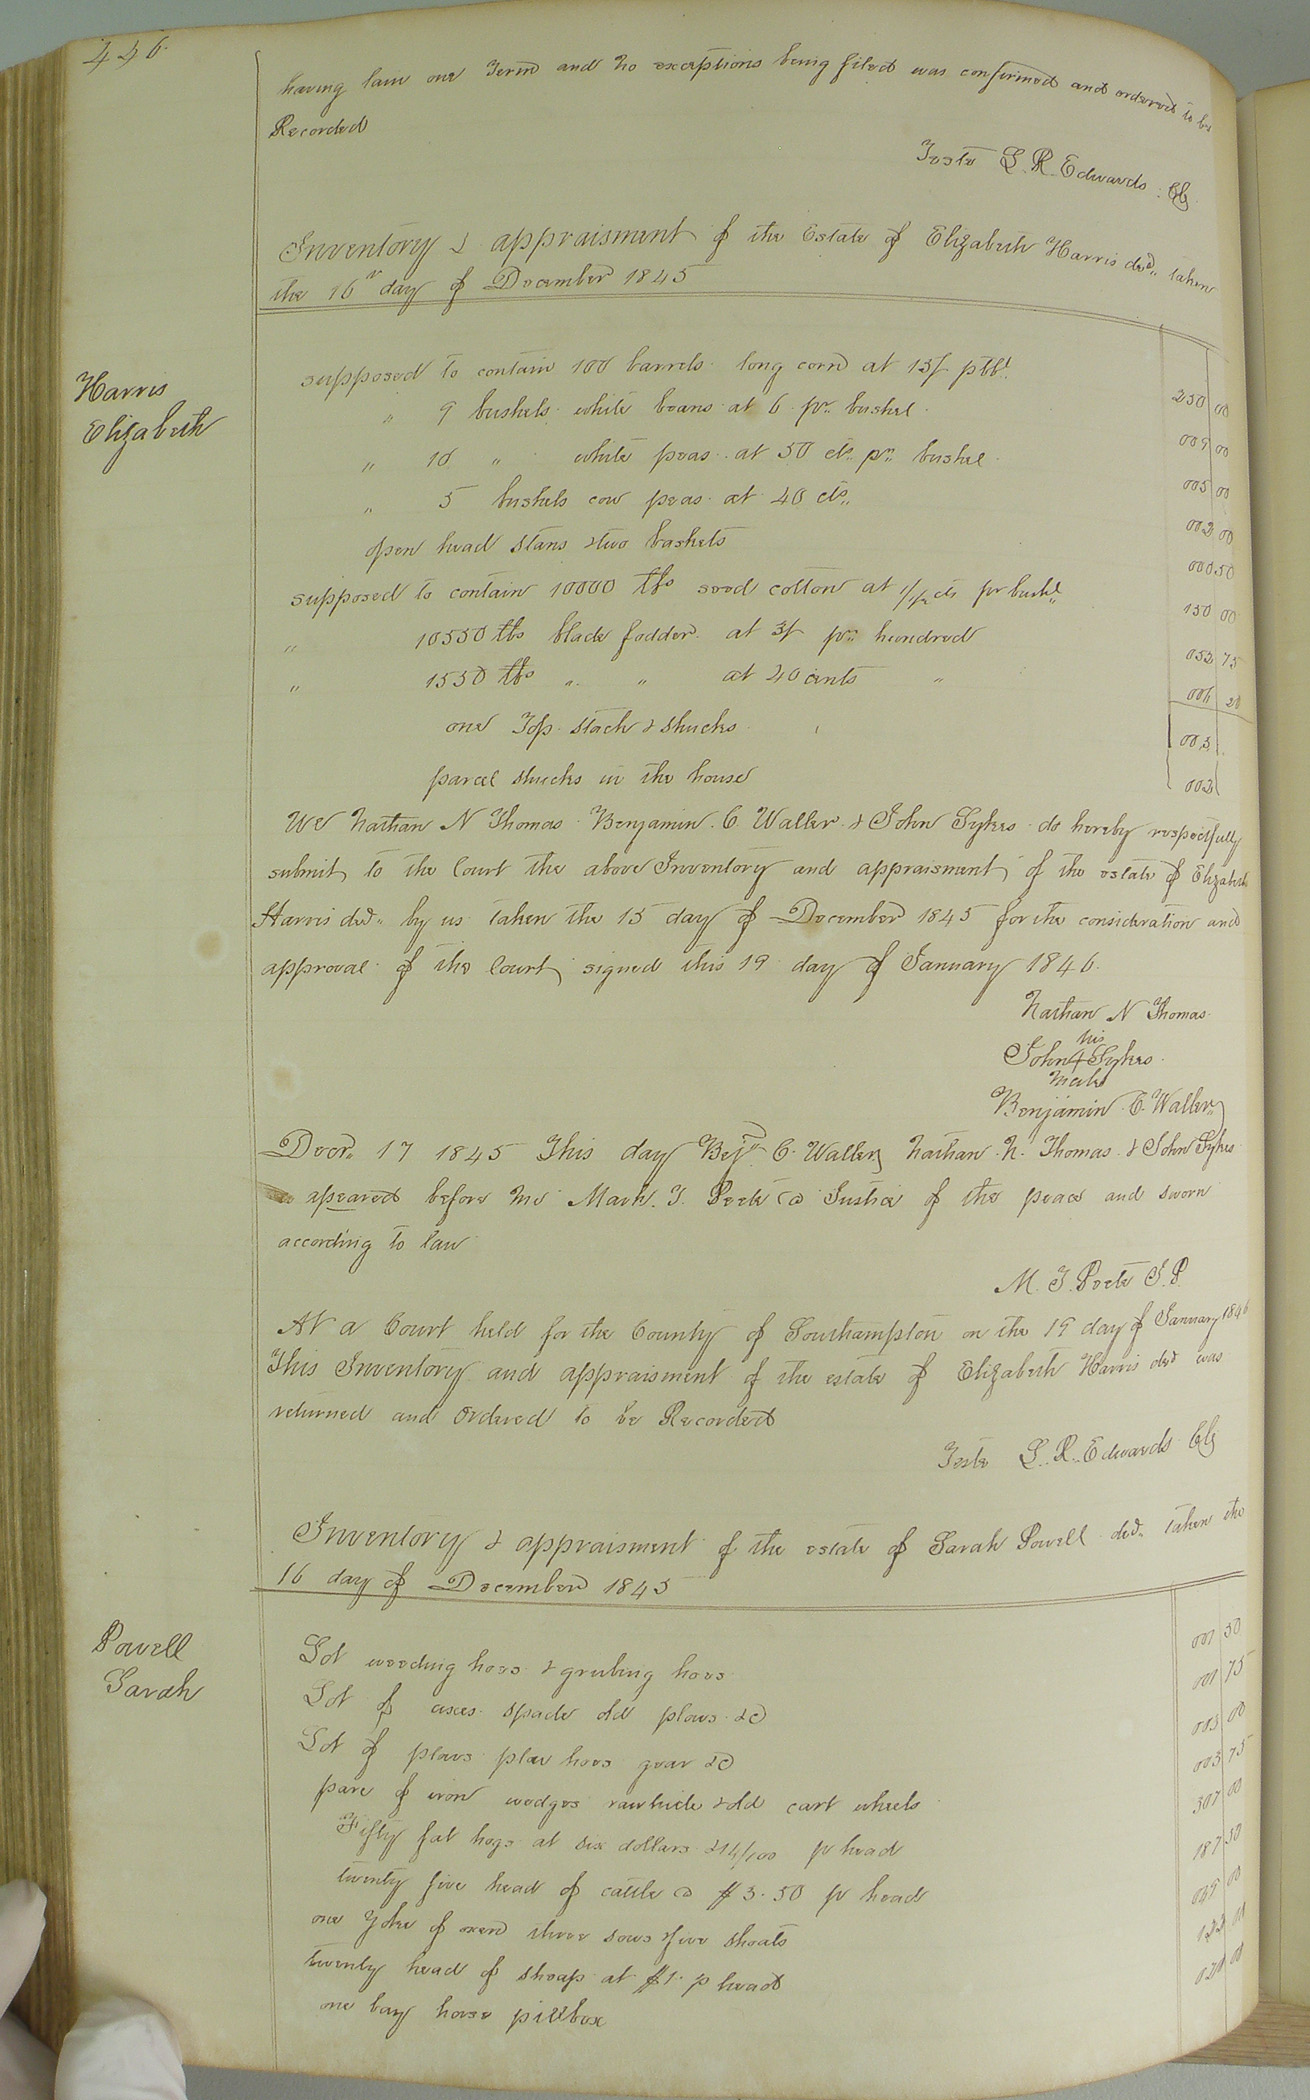 446
having lain one Term and no exceptions being filed was confirmed and ordered to be
Recorded
Teste L. R. Edwards Clk
Inventory & appraisment of the Estate of Elizabeth Harris decd,, taken
the 16th day of December 1845
Harris
Elizabeth
supposed to contain 100 barrels long corn at 15/ pr bbl 250 00
" 9 bushels white beans at 6 pr. bushel 009 00
" 10 " white peas at 50 cts. pr. bushel 005 00
" 5 bushels cow peas at 40 cts,, 002 00
open head stans & two baskets 000 50
supposed to contain 10000 lbs seed cotton at 1 1/2 cts pr bushl. 150 00
" 10550 lbs blade fodder at 3/ pr. hundred 052 75
" 1550 lbs " " at 40 cents " 006 20
one Top stack & shucks 003
parcel shucks in the house 002
We Nathan N Thomas Benjamin C. Waller & John Sykes do hereby respectfully
submit to the Court the above Inventory and appraisment of the estate of Elizabeth
Harris decd,, by us taken the 15 day of December 1845 for the consideration and
approval of the Court signed this 19 day of January 1846
Nathan N Thomas
his
John + Sykes
mark
Benjamin C. Waller
Decr. 17 1845 This day Benj. C. Waller Nathan N. Thomas & John Sykes
apeared before me Mark. T. Peete a Justice of the peace and sworn
according to law
M. T. Peete J. P.
At a Court held for the County of Southampton on the 19 day of January 1846
This Inventory and appraisment of the estate of Elizabeth Harris decd was
returned and Ordered to be Recorded
Teste L. R. Edwards Clk
Inventory & appraisment of the estate of Sarah Powell decd,, taken the
16 day of December 1845
Powell
Sarah
Lot weeding hoes & grubing hoes 001 50
Lot of axes spade old plows &c 001 75
Lot of plows plow hoes gear &c 005 00
pare of iron wedges rawhide & old cart wheels 003 75
Fifty fat hogs at six dollars & 14/100 pr head 307 00
twenty five head of cattle @ $3.50 pr head 187 50
one yoke of oxen three sows & five shoats 039 00
twenty head of sheap at $1. p head
one bay horse pillbox 020 00